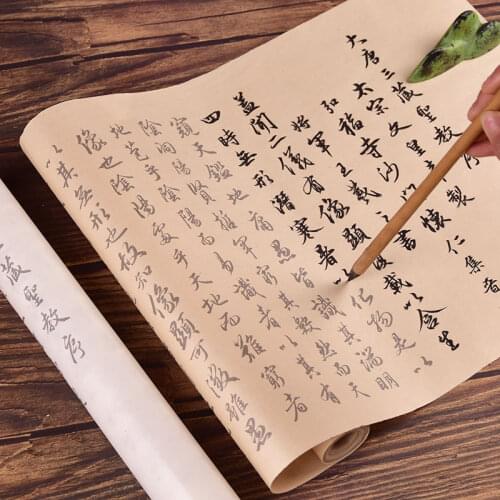 大唐三藏聖教
太宗文皇製
弘福寺沙懷仁集晉
將軍王羲之書
蓋聞二儀有像顯載以含生
四時無形潛寒暑以化物是以
窺天鑑地庸愚皆識其端明
陰洞陽賢哲罕窮其數然而天
地苞乎陰陽而易識者以其有
像也陰陽處乎天地而難窮者
以其無形也故知像顯可徵雖愚
藏聖教序